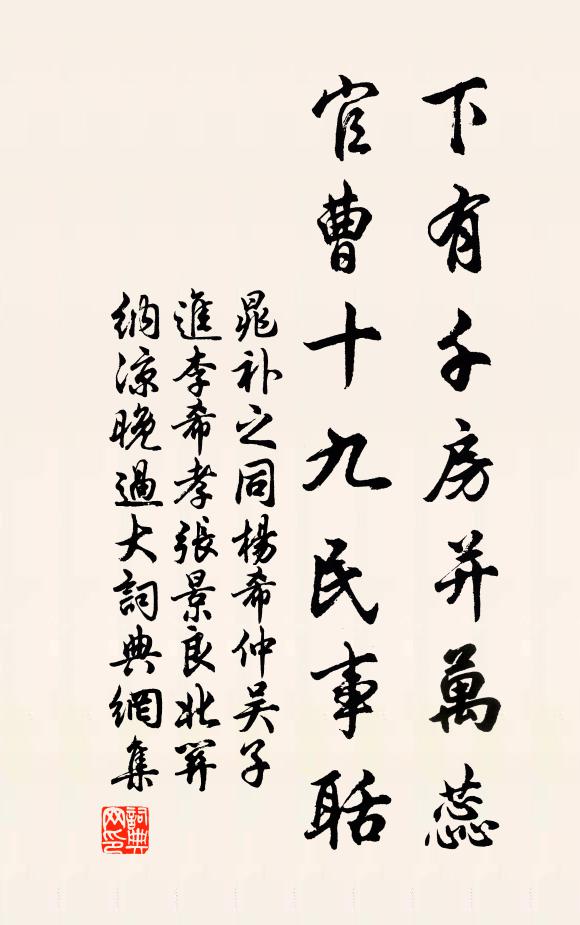 下有千房并萬蕊
官曹十九民事聒
晁补之同楊希仲吴子
進李希孝張景良北
納凉晚過大詞典網集
詞典网印